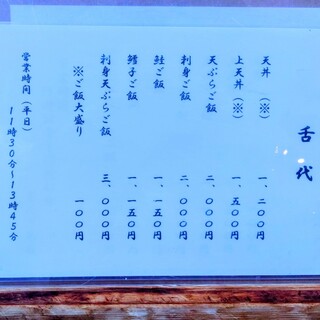 舌代
天丼 (※) 一、二〇〇円
上天丼 (※) 一、五〇〇円
天ぷらご飯 二、〇〇〇円
刺身ご飯 二、〇〇〇円
鮭ご飯 一、一五〇円
鱈子ご飯 一、一五〇円
刺身天ぷらご飯 三、〇〇〇円
※ご飯大盛り 一〇〇円
営業時間（平日）
11時30分～13時45分